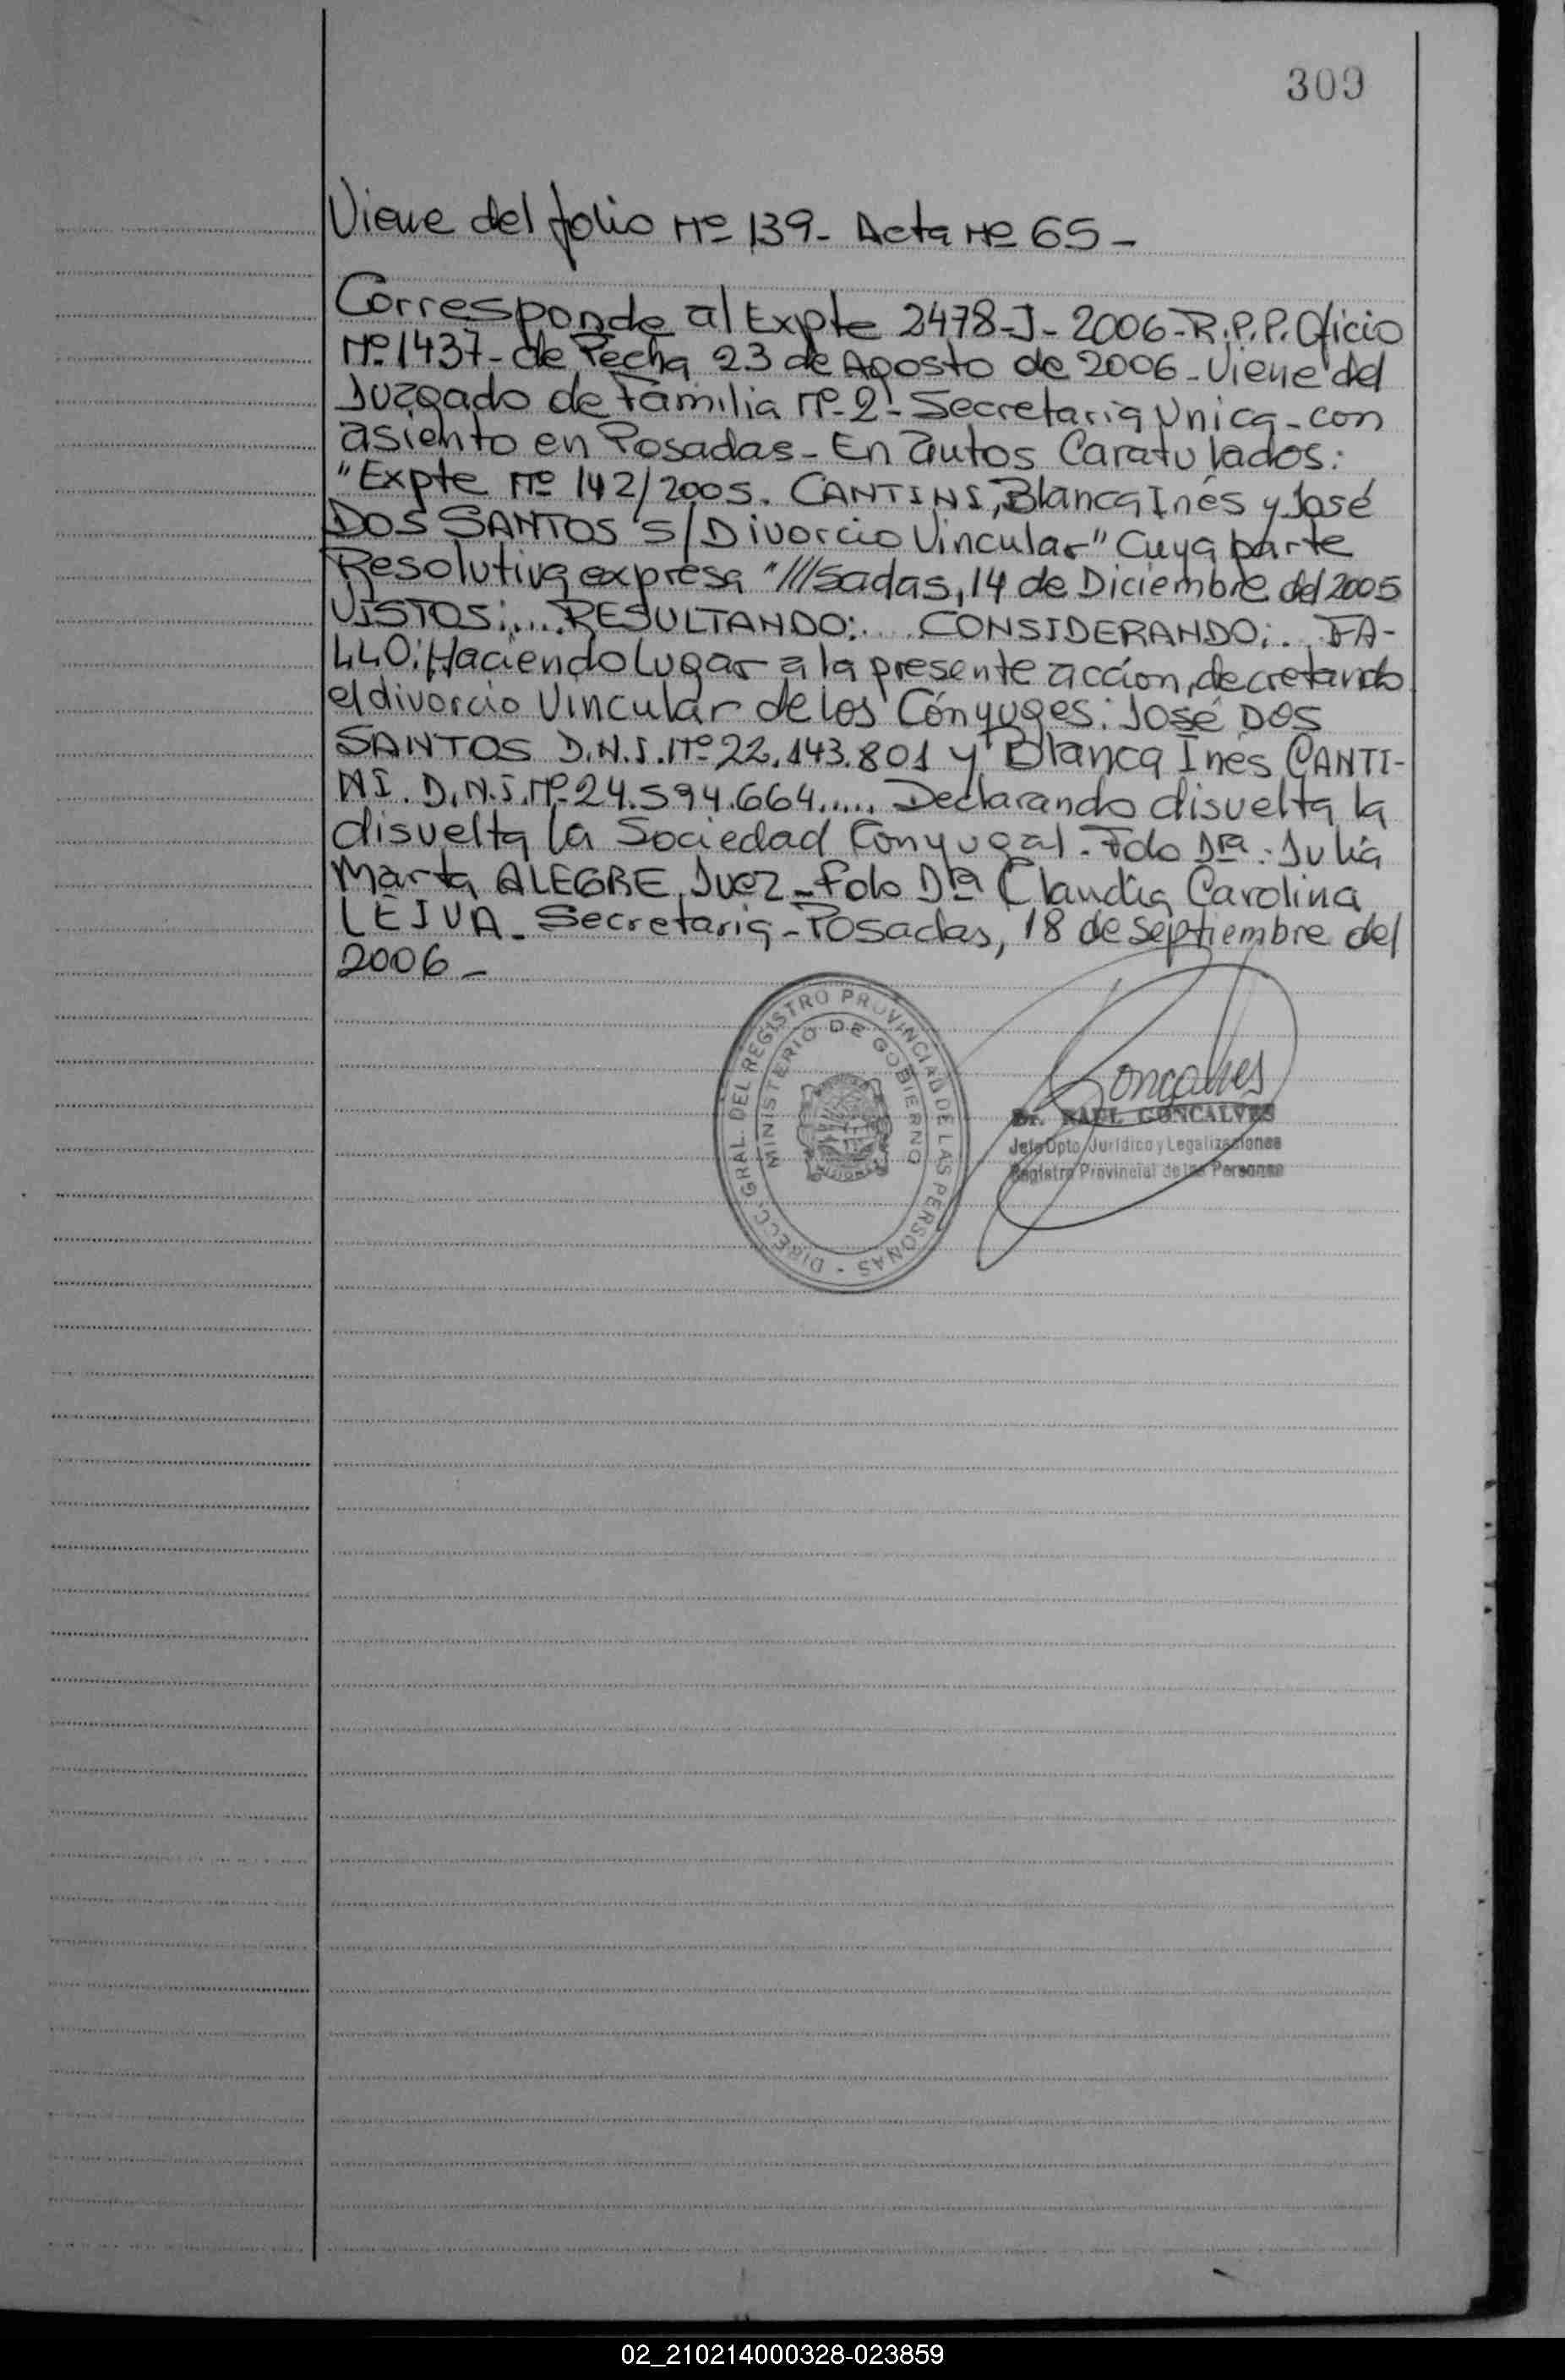 309
Viene del folio Nº 139- Acta Nº 65-
Corresponde al Expte 2478-J-2006-R.P.P. Oficio
Nº 1437- de Fecha 23 de Agosto de 2006- Viene del
Juzgado de Familia Nº 2- Secretaria Unica- con
asiento en Posadas- En autos Caratulados:
"Expte Nº 142/2005. CANTINI, Blanca Inés y José
DOS SANTOS S/ Divorcio Vincular" Cuya parte
Resolutiva expresa "///sadas, 14 de Diciembre del 2005
VISTOS:.... RESULTANDO:.... CONSIDERANDO:... FA-
LLO: Haciendo Lugar a la presente accion, decretando
el divorcio Vincular de los Cónyuges: José DOS
SANTOS D.N.I. Nº 22.143.801 y Blanca Inés CANTI-
NI. D.N.I. Nº 24.594.664..... Declarando disuelta la
disuelta la Sociedad Conyugal. Fdo Dra. Julia
Marta ALEGRE Juez- Fdo Dra Claudia Carolina
LEIVA- Secretaria- Posadas, 18 de septiembre del
2006-
DIRECC. GRAL. DEL REGISTRO PROVINCIAL DE LAS PERSONAS -
MINISTERIO DE GOBIERNO
MISIONES
Goncalves
Dr. RAUL GONCALVES
Jefe Dpto. Jurídico y Legalizaciones
Registro Provincial de las Personas
02_210214000328-023859